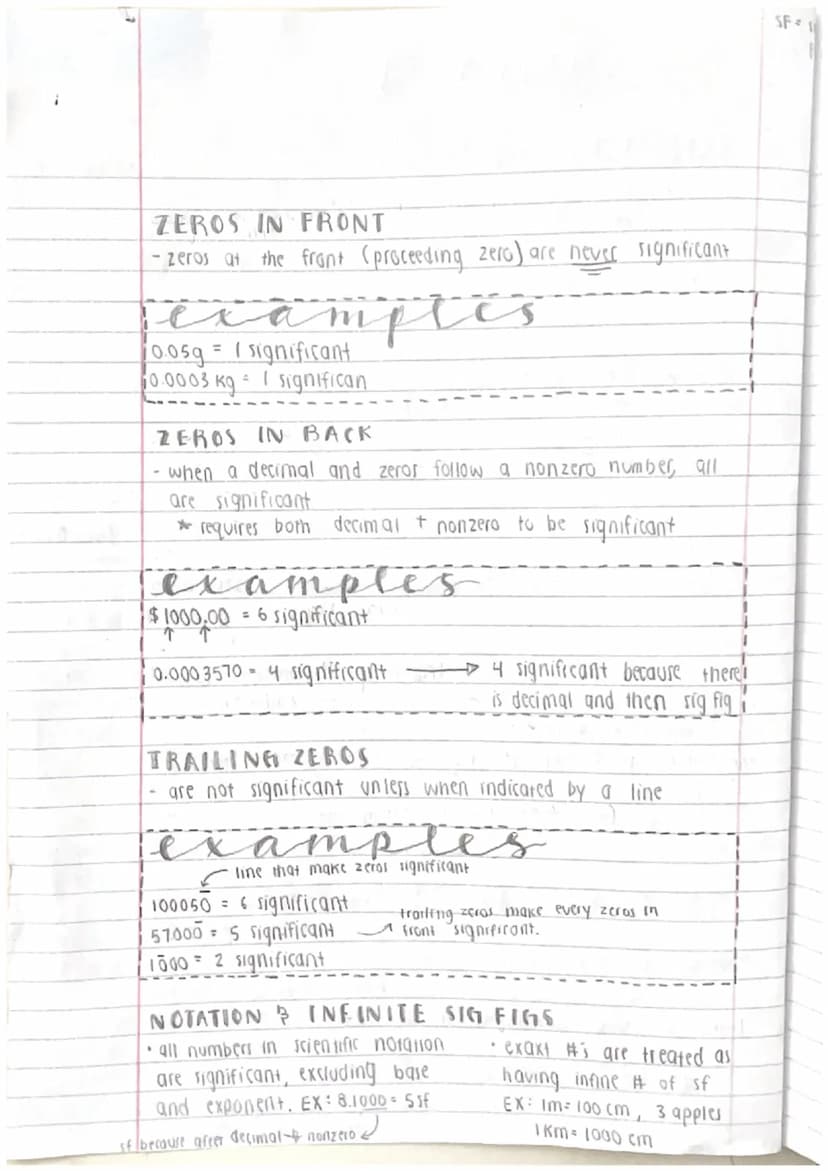 SF =
ZEROS IN FRONT
- zeros at the front (proceeding zero) are never significant
examples
0.05g = 1 significant
0.0003 kg = 1 significan
ZEROS IN BACK
- when a decimal and zeros follow a nonzero number, all
are significant
* requires both decimal + nonzero to be significant
examples
$1000.00 = 6 significant
↑ ↑
0.0003570 = 4 significant → 4 significant because there
is decimal and then sig fig
TRAILING ZEROS
- are not significant unless when indicated by a line
examples
line that make zeros significant
100050̅ = 6 significant
trailing zeros make every zeros in
57000̅ = 5 significant
front significant.
10̅00 = 2 significant
NOTATION & INFINITE SIG FIGS
• all numbers in scientific notation
are significant, excluding base
and exponent. EX: 8.1000 = 5 sf
sf because after decimal + nonzero
• exaxt #'s are treated as
having infine # of sf
EX: 1m = 100 cm, 3 apples
1 Km = 1000 cm